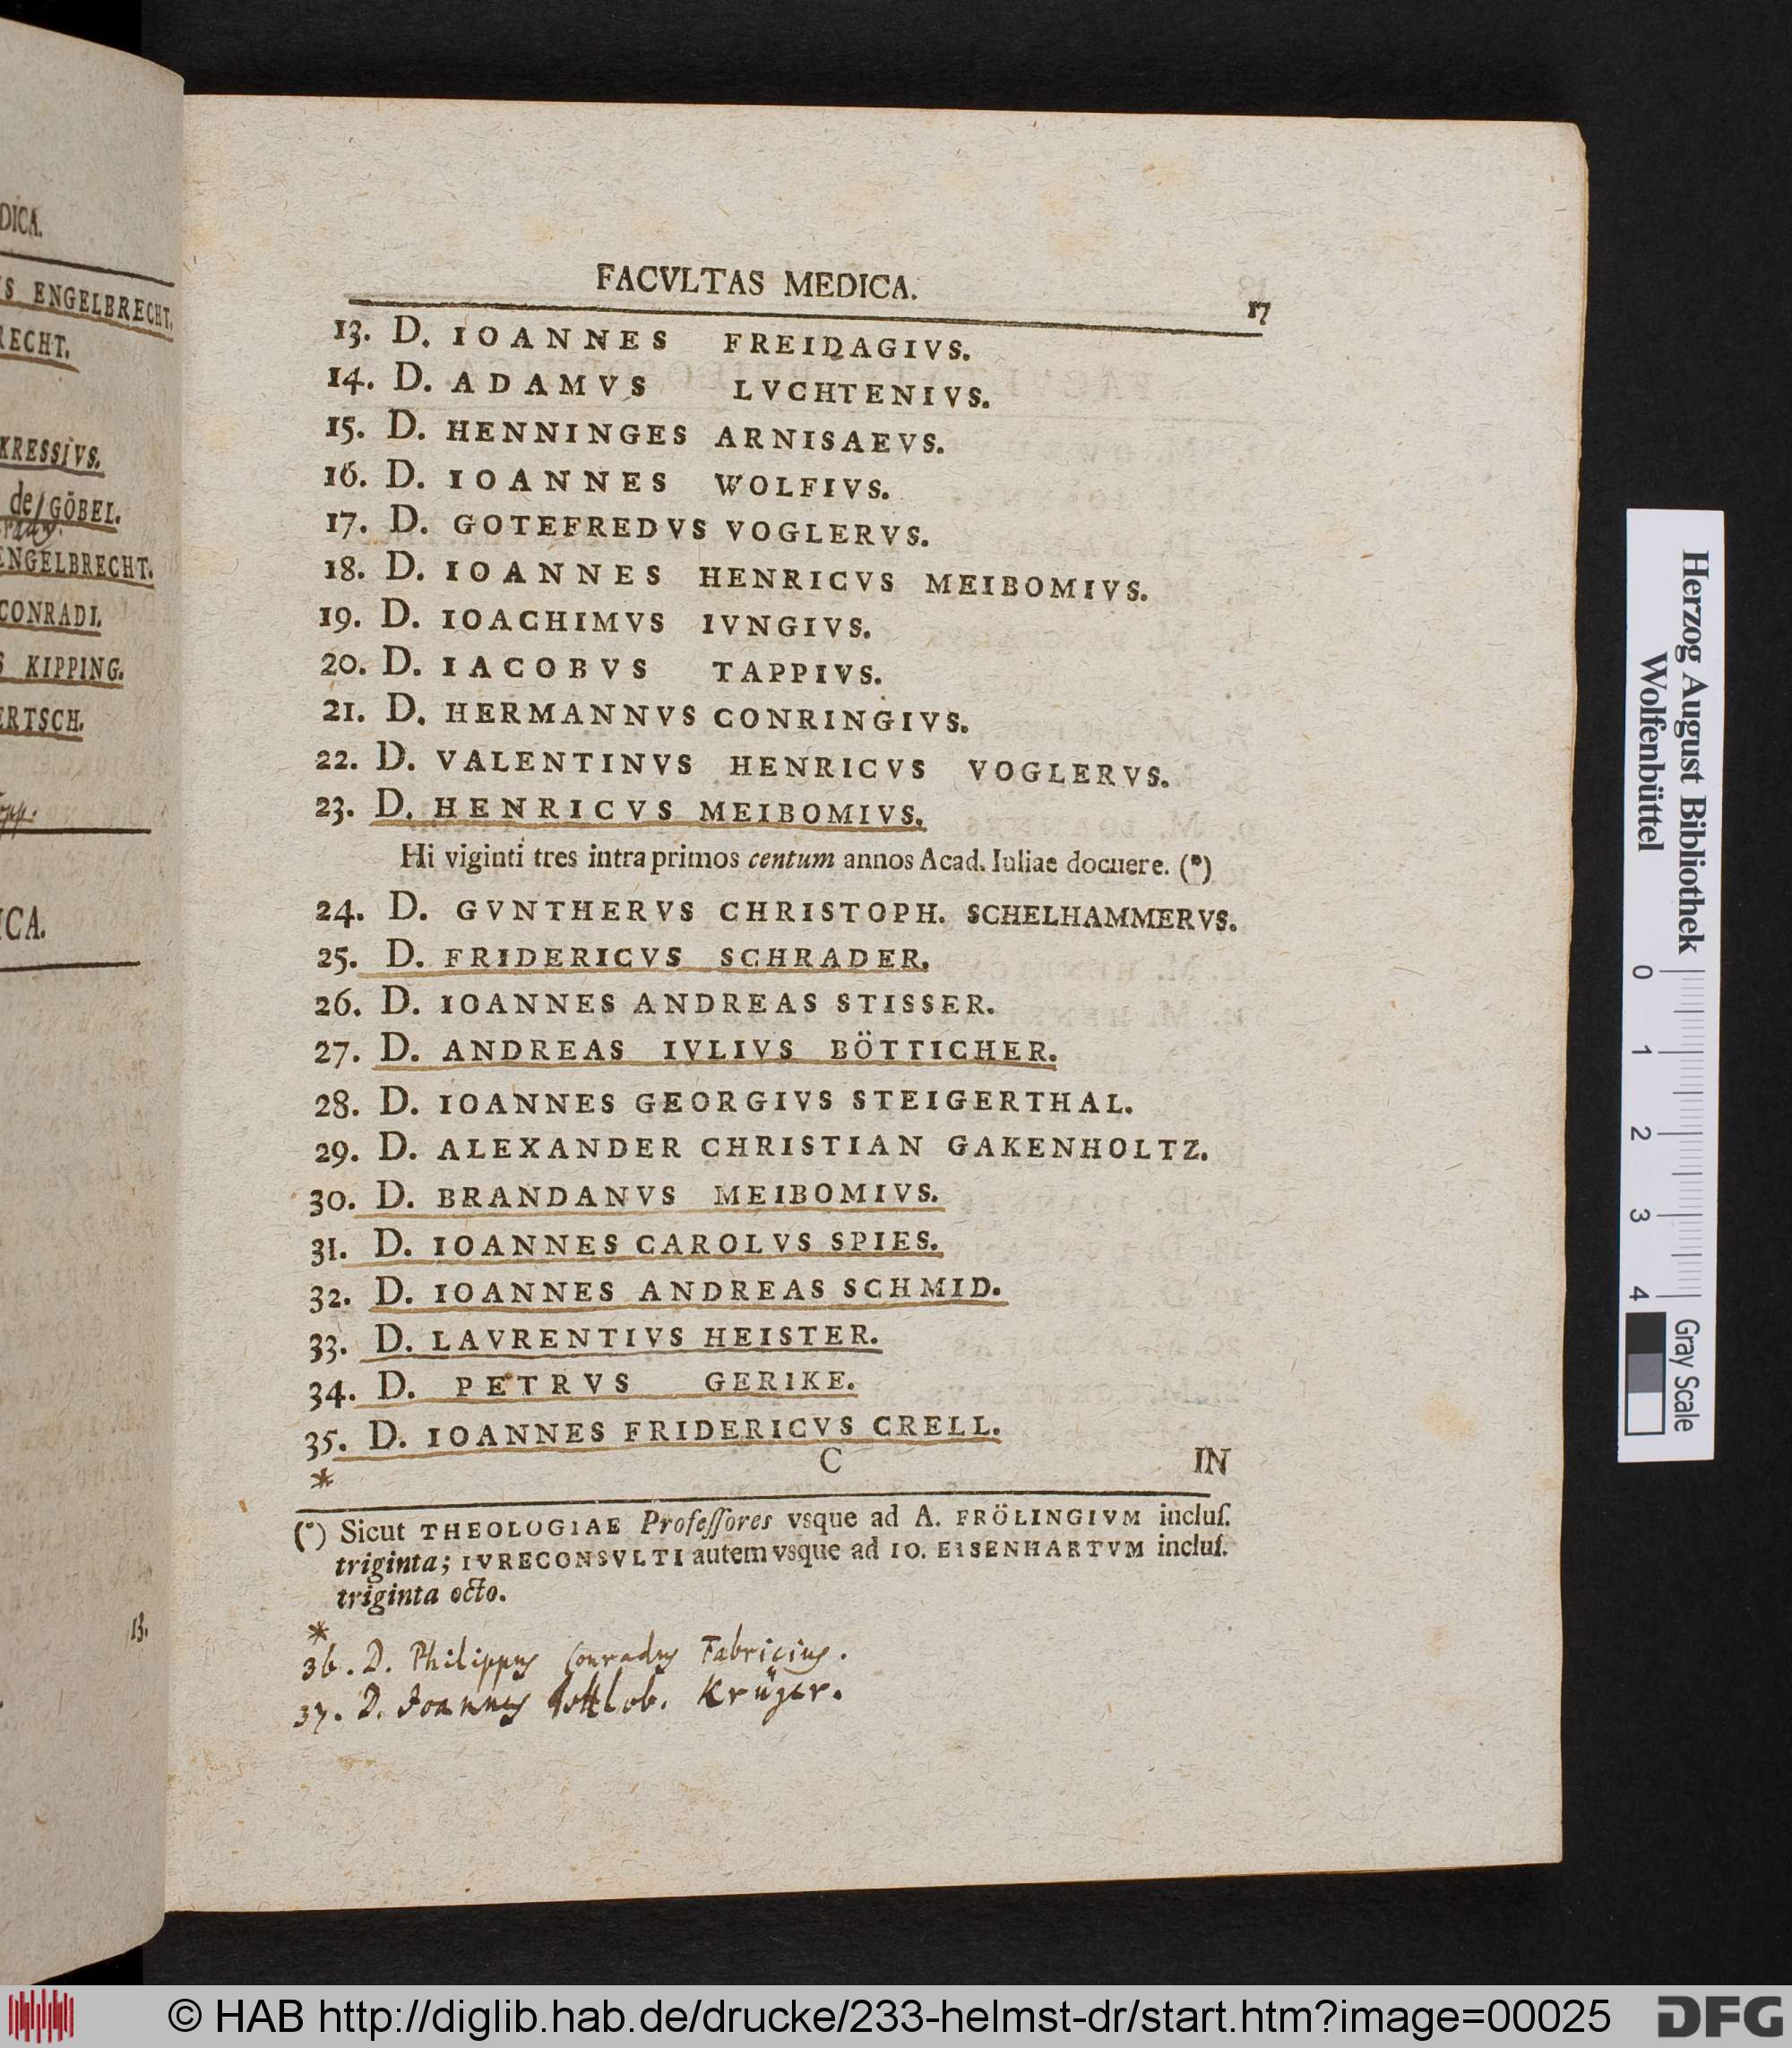 DICA.
VS ENGELBRECHT.
RECHT.
KRESSIVS.
de GÖBEL.
ENGELBRECHT.
CONRADI.
S KIPPING.
ERTSCH.
ICA.
13.
FACVLTAS MEDICA.
17
13. D. IOANNES FREIDAGIVS.
14. D. ADAMVS LVCHTENIVS.
15. D. HENNINGES ARNISAEVS.
16. D. IOANNES WOLFIVS.
17. D. GOTEFREDVS VOGLERVS.
18. D. IOANNES HENRICVS MEIBOMIVS.
19. D. IOACHIMVS IVNGIVS.
20. D. IACOBVS TAPPIVS.
21. D. HERMANNVS CONRINGIVS.
22. D. VALENTINVS HENRICVS VOGLERVS.
23. D. HENRICVS MEIBOMIVS.
Hi viginti tres intra primos centum annos Acad. Iuliae docuere. (*)
24. D. GVNTHERVS CHRISTOPH. SCHELHAMMERVS.
25. D. FRIDERICVS SCHRADER.
26. D. IOANNES ANDREAS STISSER.
27. D. ANDREAS IVLIVS BÖTTICHER.
28. D. IOANNES GEORGIVS STEIGERTHAL.
29. D. ALEXANDER CHRISTIAN GAKENHOLTZ.
30. D. BRANDANVS MEIBOMIVS.
31. D. IOANNES CAROLVS SPIES.
32. D. IOANNES ANDREAS SCHMID.
33. D. LAVRENTIVS HEISTER.
34. D. PETRVS GERIKE.
35. D. IOANNES FRIDERICVS CRELL.
* C IN
(*) Sicut THEOLOGIAE Profeſſores vsque ad A. FRÖLINGIVM incluſ.
triginta; IVRECONSVLTI autem vsque ad IO. EISENHARTVM incluſ.
triginta octo.
*
36. D. Philippus Conradus Fabricius.
37. D. Joannes Gottlob. Krüger.
Herzog August Bibliothek
Wolfenbüttel
0 1 2 3 4
Gray Scale
© HAB http://diglib.hab.de/drucke/233-helmst-dr/start.htm?image=00025
DFG